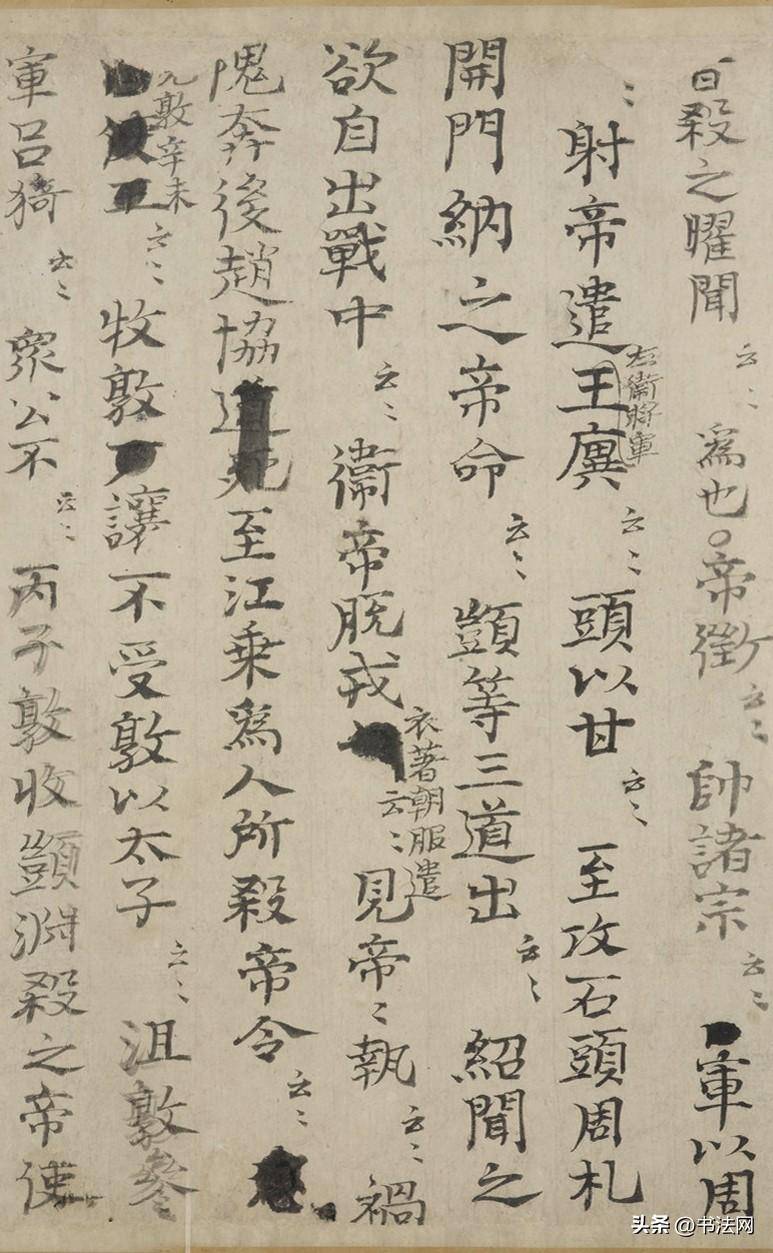 日殺之曜聞云〻爲也○帝徵云〻帥諸宗云〻軍以周
〻射帝遣王廙云〻頭以甘云〻至攻石頭周札
左衛將軍
開門納之帝命云〻顗等三道出云〻紹聞之
欲自出戰中云〻衛帝脫戎衣著朝服遣云〻見帝〻執云〻禍
隗奔後趙協至江乗爲人所殺帝令云〻
敦辛未云〻牧敦讓不受敦以太子云〻沮敦參
軍呂猗云〻衆公不云〻丙子敦收顗淵殺之帝使
头条 @书法网